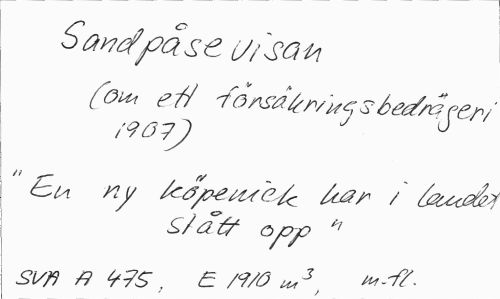 Sandpåsevisan
(om ett försäkringsbedrägeri
1907)
"En ny köpenick har i landet
stått opp"
SVA A 475, E 1910 m³, m.fl.